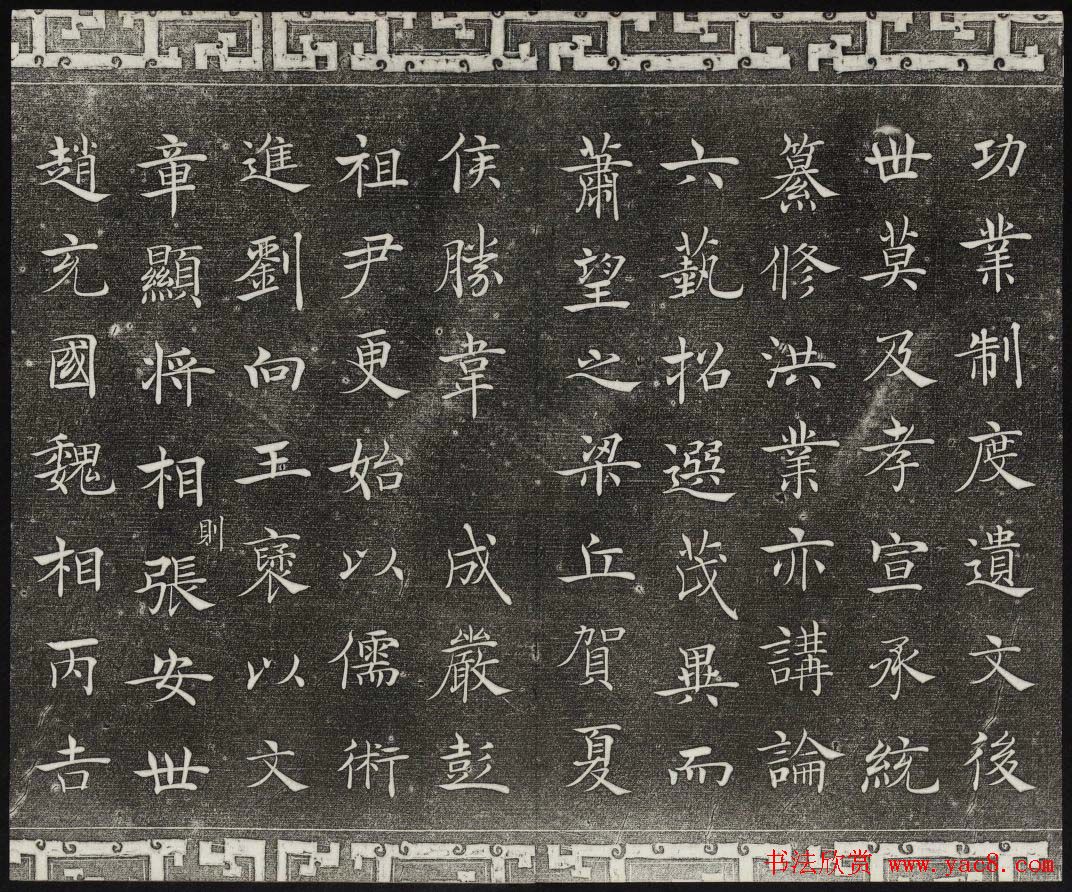 功業制度遺文後
世莫及孝宣承統
纂修洪業亦講論
六藝招選茂異而
蕭望之梁丘賀夏
侯勝韋 成嚴彭
祖尹更始以儒術
進劉向王褒以文
章顯將相則張安世
趙充國魏相丙吉
书法欣赏 www.yac8.com